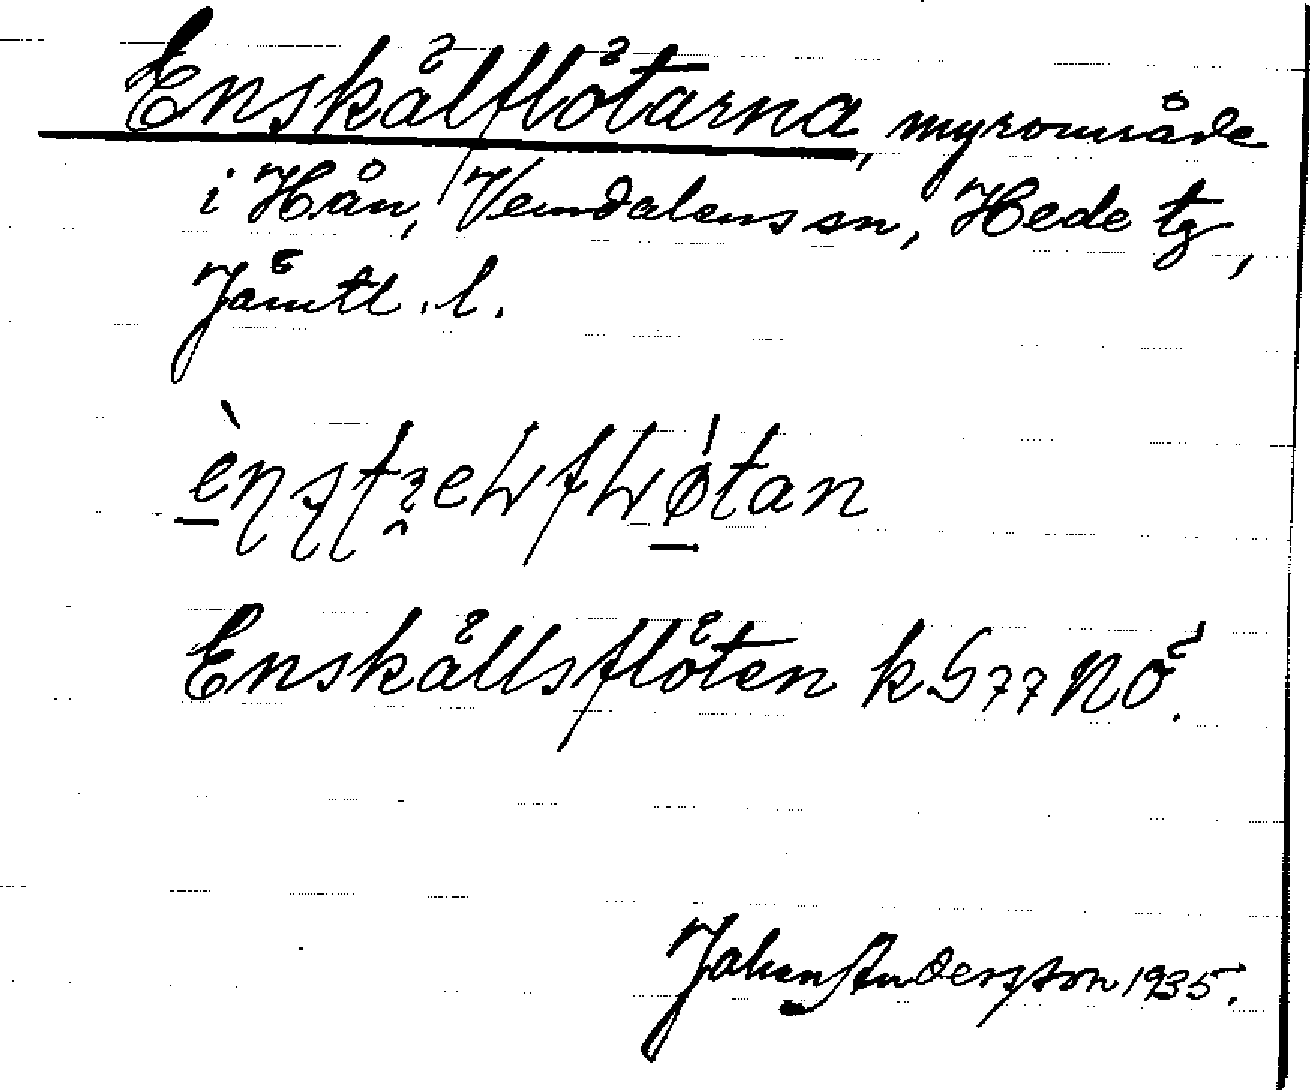 Enskålflötarna, myrområde
i Hån, Vemdalens sn, Hede tg,
Jämtl. l.
Enskållsflöten k G 77 NÖ.
Johan Andersson 1935.